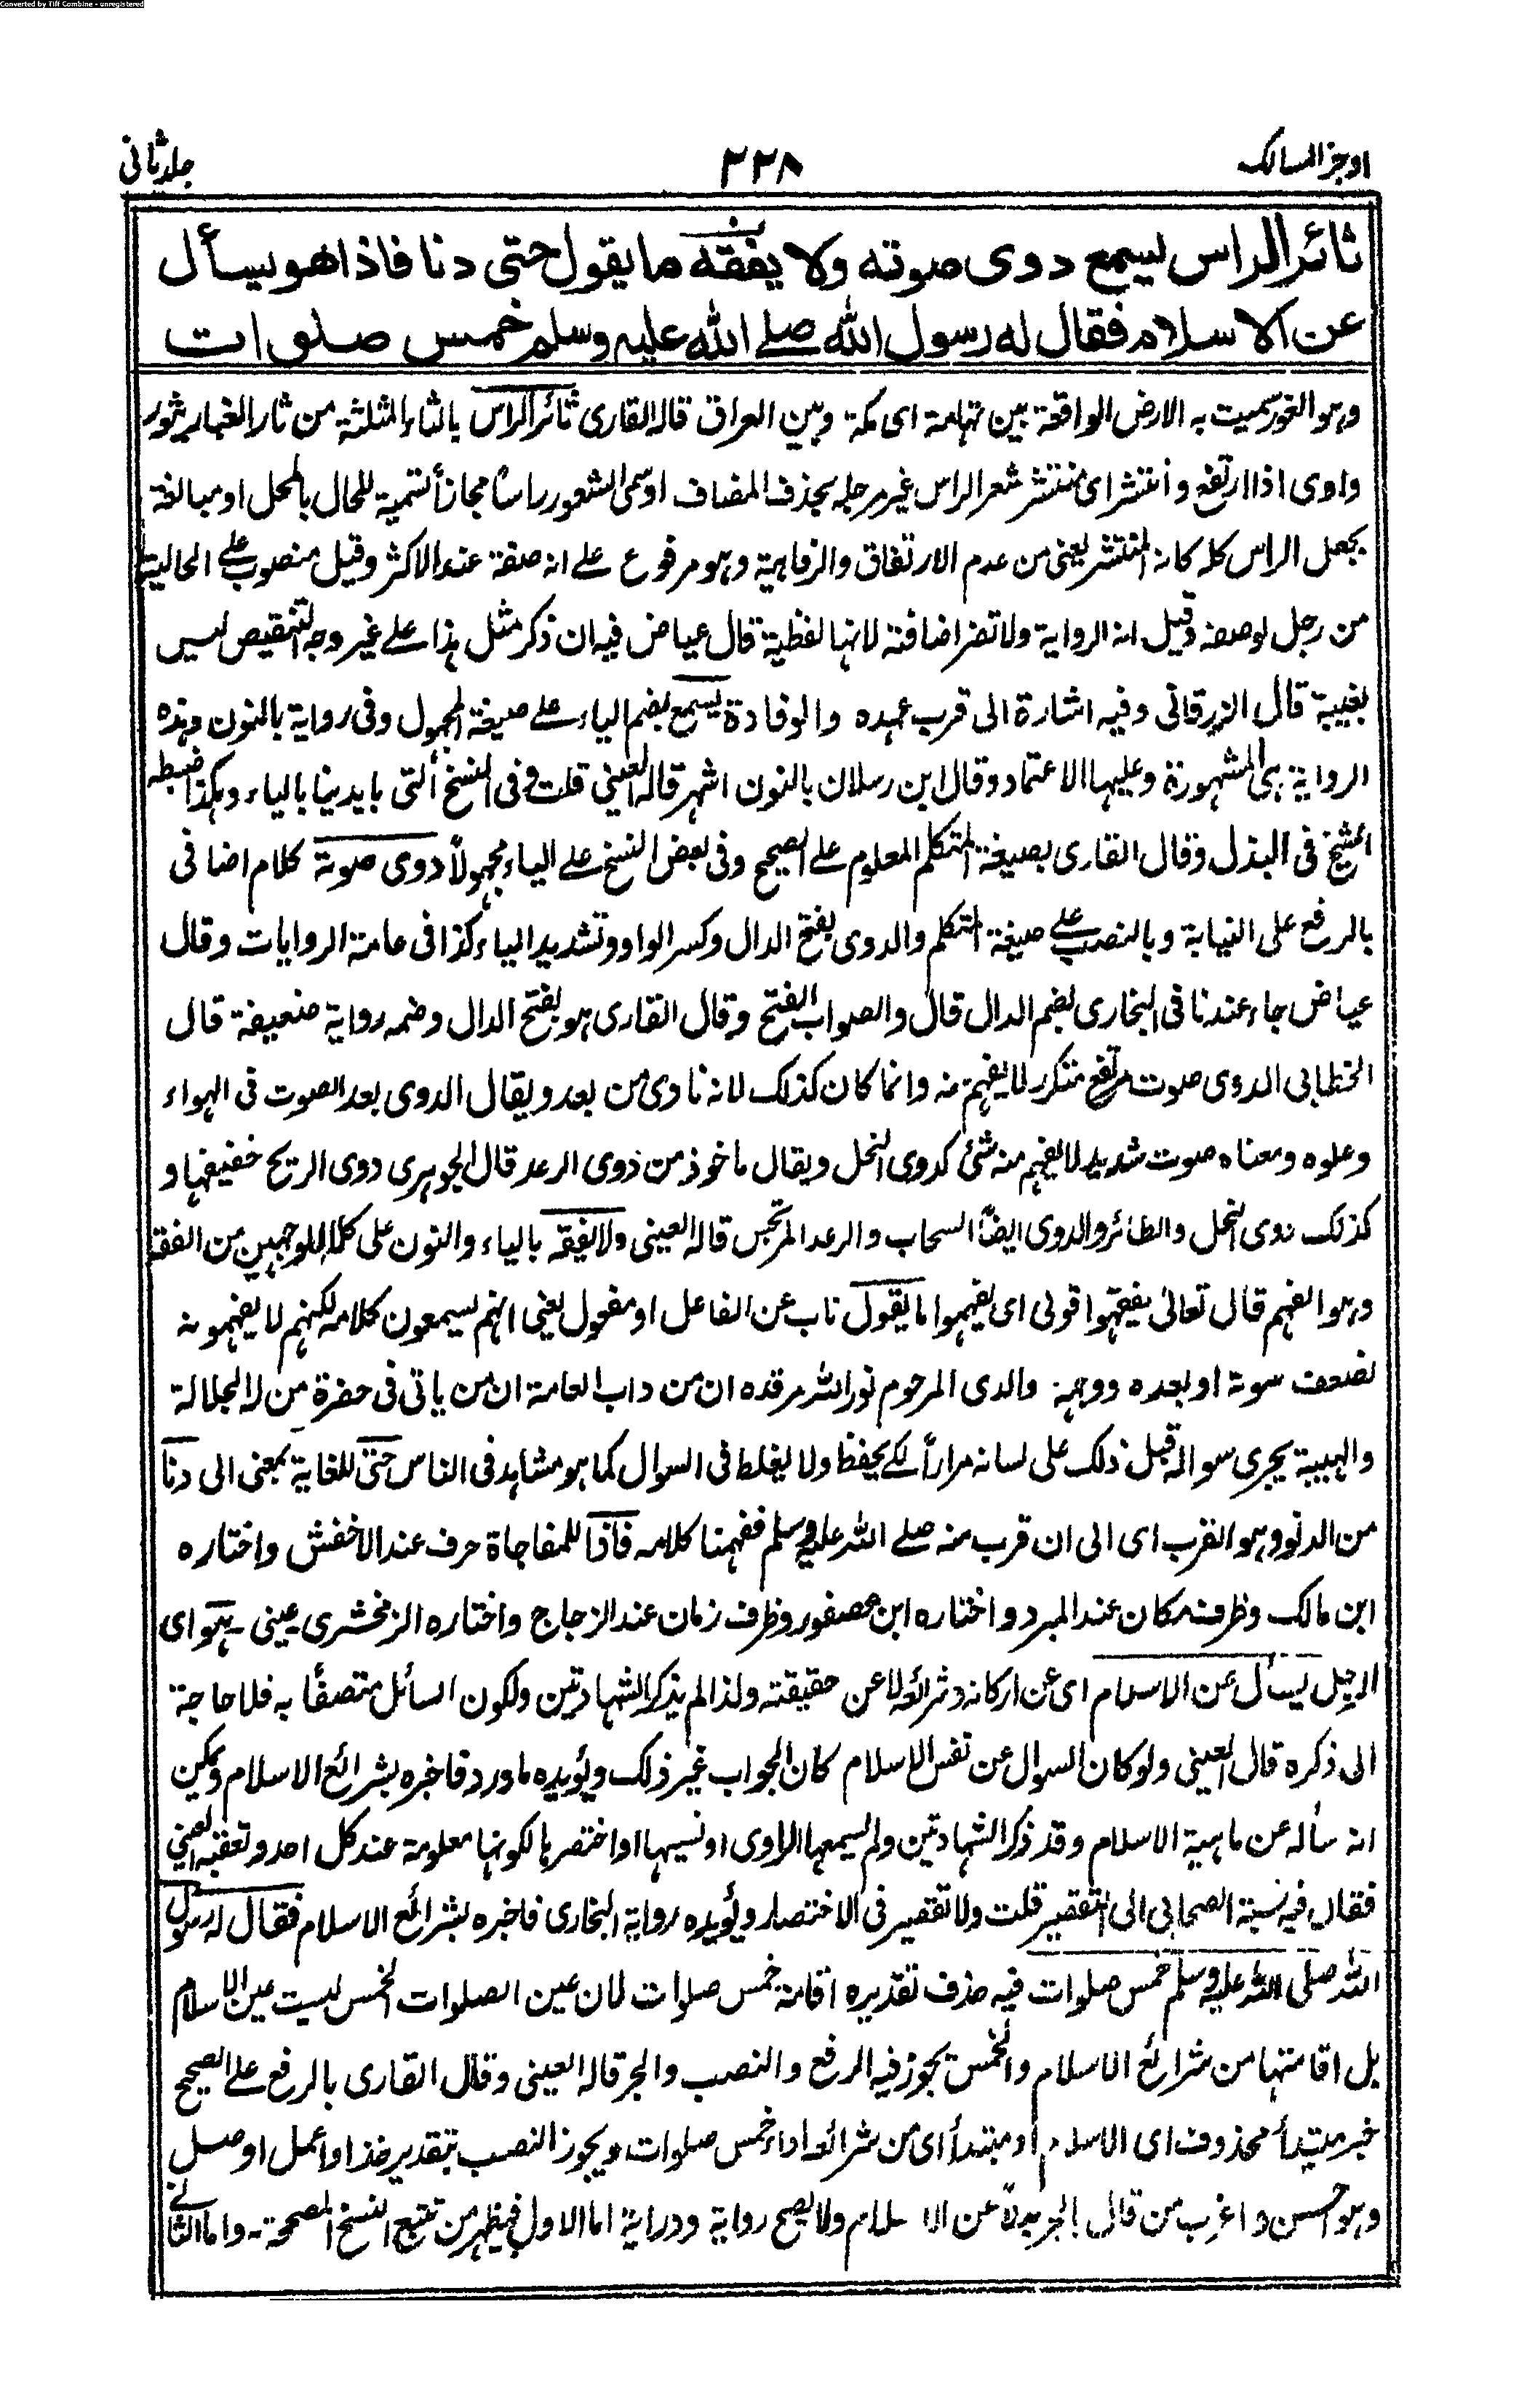 Converted by Tiff Combine - unregistered
اوجز المسالک ۲۲۸ جلد ثانی
ثائر الراس یسمع دوی صوته ولا یفقه ما یقول حتی دنا فاذا هو یسأل
عن الاسلام فقال له رسول الله صلے الله علیه وسلم خمس صلوات
وہو الغور سمیت بہ الارض الواقعة بین تہامة ای مکة وبین العراق قالہ القاری ثائر الراس بالثاء المثلثة من ثار الغبار یثور
واوی اذا ارتفع وانتشر ای منتشر شعر الراس غیر مرجلہ بحذف المضاف او سمی الشعور راسًا مجازًا تسمیة للحال بالمحل او مبالغة
بجعل الراس کلہ کانہ المنتشر یعنی من عدم الارتفاق والرفاہیة وہو مرفوع علے انہ صفة عند الاکثر وقیل منصوب علے الحالیة
من رجل لوصفہ وقیل انہ الروایة ولا تضر اضافتہ لانہا لفظیة قال عیاض فیہ ان ذکر مثل ہذا علے غیر وجہ التنقیص لیس
بغیبة قال الزرقانی وفیہ اشارة الی قرب عہدہ والوفادة یسمع بضم الیاء علے صیغة المجہول وفی روایة بالنون وہذہ
الروایة ہی المشہورة وعلیہا الاعتماد وقال ابن رسلان بالنون اشہر قالہ العینی قلت وفی النسخ التی بایدینا بالیاء وہکذا ضبطہ
الشیخ فی البذل وقال القاری بصیغة المتکلم المعلوم علے الصحیح وفی بعض النسخ علے الیاء مجہولًا دوی صوتہ کلام اضافی
بالرفع علی النیابة وبالنصب علے صیغة المتکلم والدوی بفتح الدال وکسر الواو وتشدید الیاء کذا فی عامة الروایات وقال
عیاض جاء عندنا فی البخاری بضم الدال قال والصواب الفتح وقال القاری ہو بفتح الدال وضمہ روایة ضعیفة قال
الخطابی الدوی صوت مرتفع متکرر لا یفہم منہ وانما کان کذلک لانہ نادی من بعد ویقال الدوی بعد الصوت فی الہواء
وعلوہ ومعناہ صوت شدید لا یفہم منہ شئ کدوی النحل ویقال ماخوذ من دوی الرعد قال الجوہری دوی الریح حفیفہا و
کذلک دوی النحل والطائر والدوی ایضًا السحاب والرعد المرتجس قالہ العینی ولا یفقہ بالیاء والنون علی کلا الوجہین من الفقہ
وہو الفہم قال تعالی یفقہوا قولی ای یفہموا ما یقول ناب عن الفاعل او مفعول یعنی انہم یسمعون کلامہ لکنہم لا یفہمونہ
لضعف صوتہ او بعدہ ووجہہ والدی المرحوم نور اللہ مرقدہ ان من داب العامة ان من یاتی فی حضرة من لہ الجلالة
والہیبة یجری سوالہ قبل ذلک علی لسانہ مرارًا لکے یحفظ ولا یغلط فی السوال کما ہو مشاہد فی الناس حتی للغایة بمعنی الی دنا
من الدنو وہو القرب ای الی ان قرب منہ صلے اللہ علیہ وسلم ففہمنا کلامہ فاذا للمفاجاة حرف عند الاخفش واختارہ
ابن مالک وظرف مکان عند المبرد واختارہ ابن عصفور وظرف زمان عند الزجاج واختارہ الزمخشری عینی۔ ہو ای
الرجل یسأل عن الاسلام ای عن ارکانہ وشرائعہ لا عن حقیقتہ ولذا لم یذکر الشہادتین ولکون السائل متصفًا بہ فلا حاجة
الی ذکرہ قال العینی ولو کان السوال عن نفس الاسلام کان الجواب غیر ذلک ویؤیدہ ما ورد فاخبرہ بشرائع الاسلام ویمکن
انہ سألہ عن ماہیة الاسلام وقد ذکر الشہادتین ولم یسمعہا الراوی او نسیہا او اختصرہا لکونہا معلومة عند کل احد وتعقبہ العینی
فقال فیہ نسبة الصحابی الی التقصیر قلت ولا تقصیر فی الاختصار ویؤیدہ روایة البخاری فاخبرہ بشرائع الاسلام فقال لہ رسول
اللہ صلی اللہ علیہ وسلم خمس صلوات فیہ حذف تقدیرہ اقامة خمس صلوات لان عین الصلوات الخمس لیست عین الاسلام
بل اقامتہا من شرائع الاسلام والخمس یجوز فیہ الرفع والنصب والجر قالہ العینی وقال القاری بالرفع علے الصحیح
خبر مبتدأ محذوف ای الاسلام او مبتدأ ای من شرائعہ اداء خمس صلوات ویجوز النصب بتقدیر خذ او اعمل او صل
وہو احسن واغرب من قال بالجر بدلًا عن الاسلام ولا یصح روایة ودرایة اما الاول فیظہر من تتبع النسخ المصححة۔ واما الثانے